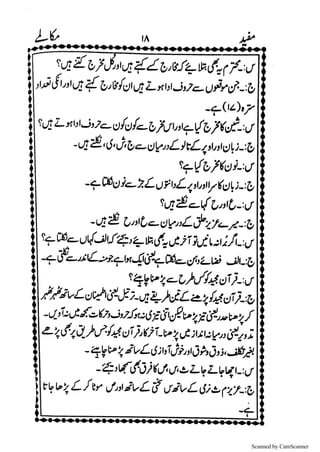 مفید ۱۸ مکالمے
س:۔ محترم یہ بھی بتلایئے کہ مخارج کسے کہتے ہیں اور کل مخرج کتنے ہیں؟
ج:۔ جن موقعوں سے حروف ادا ہوتے ہیں ان کو مخارج کہتے ہیں اور انکی تعداد
سترہ (۱۷) ہے۔
س:۔ شین کا مخرج کیا ہے اور اس مخرج سے کون کون سے حروف ادا ہوتے ہیں؟
ج:۔ زبان اور اوپر کے تالو کے درمیان سے ج، ش، ی، نکلتے ہیں۔
س:۔ نون کا مخرج کیا ہے؟
ج:۔ زبان کا سرا اور اوپر کے دانتوں کے جڑ سے نون نکلتا ہے۔
س:۔ ع اور ح کہا سے نکلتے ہیں؟
ج:۔ میرے عزیز حلق کے درمیان سے ع اور ح نکلتے ہیں۔
س:۔ اگر بُرا نہ مانیں تو آخر میں یہ بھی بتلا دیجئے کہ الف کہاں سے نکلتا ہے؟
ج:۔ الف فضائے دہن سے نکلتا ہے یعنی ایک ہوا ہے جو منہ کے اندر سے نکلتی ہے۔
س:۔ قرآن مجید کو کس طرح سے پڑھنا چاہئے؟
ج:۔ قرآن مجید کو پڑھنے کے تین طریقے ہیں۔ ترتیل یعنی اطمینان کے ساتھ ٹھہر ٹھہر
کر پڑھنا حدر یعنی تیز پڑھنا لیکن اتنی تیزی نہ ہو کہ حروف و حرکات سمجھ میں نہ آویں۔
تدویر یعنی درمیانہ انداز میں پڑھنا۔ آخر کار قرآن مجید کو جس طریق پر بھی پڑھے
بغیر تکلف، ذوق و شوق اور خوش آوازی کے ساتھ پڑھنا چاہئے۔
س:۔ اچھا جاتے جاتے ث، س، ص کا فرق بھی سمجھا دیجئے۔
ج:۔ عزیزم ث نرمی کے ساتھ س سختی کے ساتھ اور ص موٹا کر کے پڑھا جاتا
ہے۔
Scanned by CamScanner